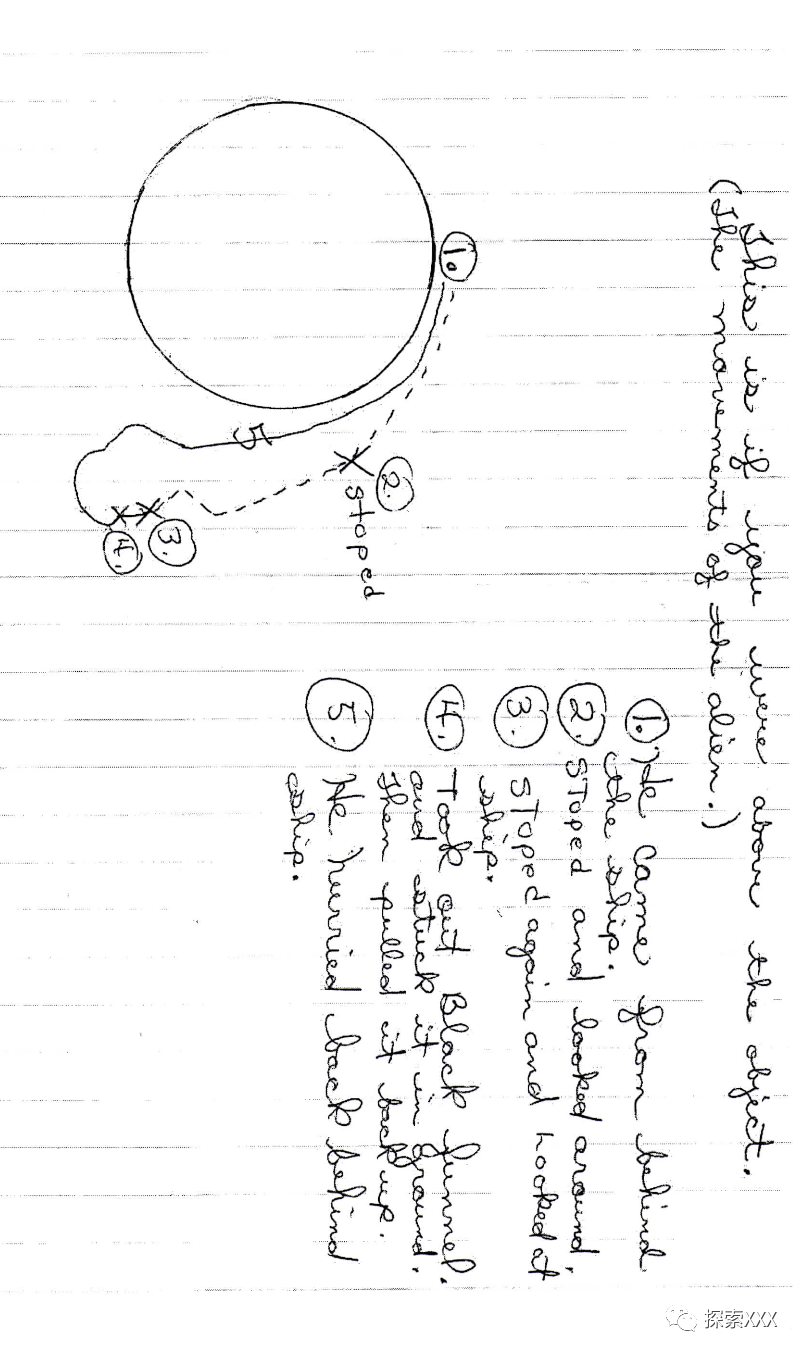 This is if you were above the object.
(The movements of the alien.)
1.
2.
Stoped
3.
4.
5
1.) He came from behind
the ship.
2. Stoped and looked around.
3. Stoped again and looked at
ship.
4. Took out Black funnel.
and stuck it in ground.
Then pulled it back up.
5. He hurried back behind
ship.
探索XXX